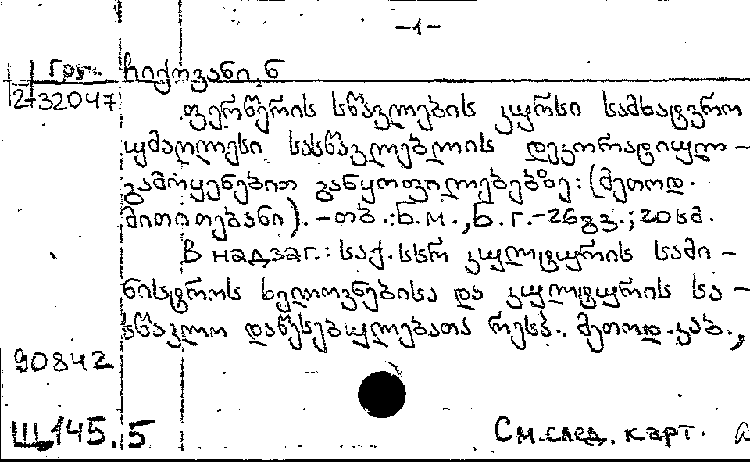 -1-
Гру. ჩიქოვანი, ნ
2-32047
ფერწერის სწავლების კურსი სამხატვრო
უმაღლესი სასწავლებლის დეკორატიულ-
გამოყენებით განყოფილებებზე: (მეთოდ.
მითითებანი). -თბ.:Б.М.,Б.Г.-26გვ.; 20სმ.
В надзаг.: საქ.სსრ კულტურის სამი-
ნისტროს ხელოვნებისა და კულტურის სა-
სწავლო დაწესებულებათა რესპ. მეთოდ.კაბ.,
90842
Щ145.5
См.след. карт.